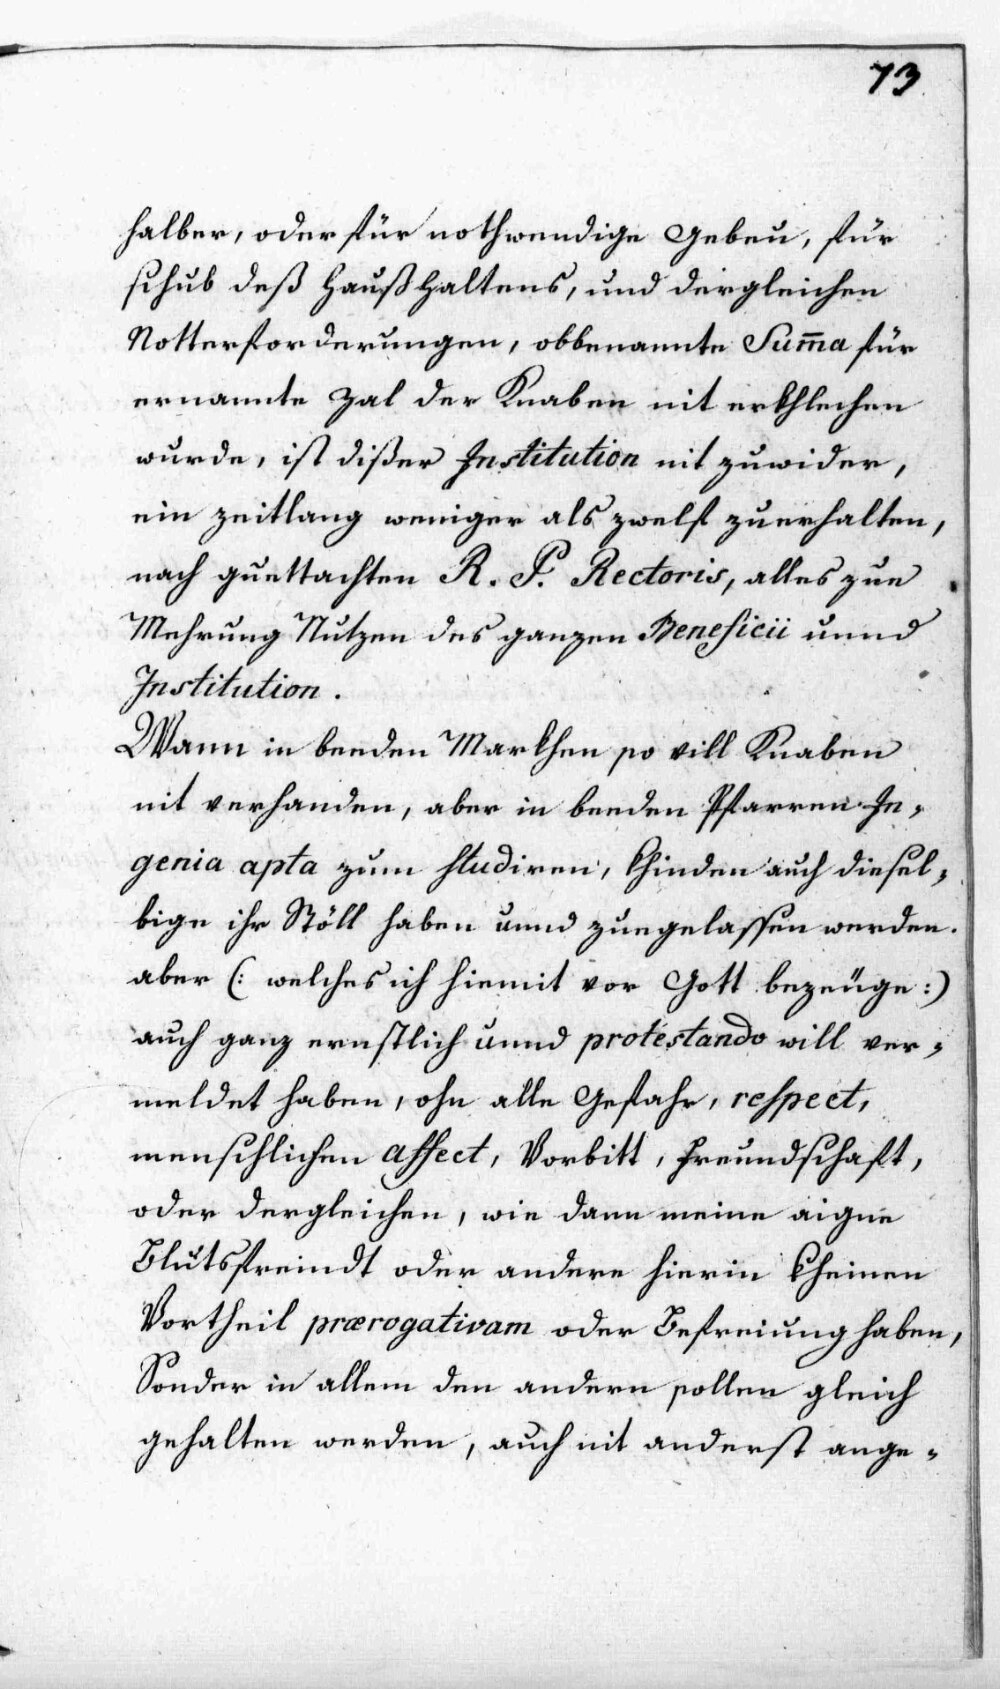 73
halber, oder für nothwendige Gebeu, für
schub deß Haußhaltens, und dergleichen
Notterforderungen, obbenannte Sum̅a für
ernannte Zal der Knaben nit erkhlechen
wurde, ist dißer Institution nit zuwider,
ein zeitlang weniger als zwelf zuerhalten,
nach guettachten R. P. Rectoris, alles zue
Mehrung Nutzen des ganzen Beneficii unnd
Institution.
Wann in beeden Markhen so vill Knaben
nit verhanden, aber in beeden Pfarren In„
genia apta zum studiren, khinden auch diesel„
bige ihr Stöll haben unnd zuegelassen werden.
aber (: welches ich hiemit vor Gott bezeüge :)
auch ganz ernstlich unnd protestando will ver„
meldet haben, ohn alle Gefahr, respect,
menschlichen affect, Vorbitt, Freundschaft,
oder dergleichen, wie dann meine aigne
Blutsfreindt oder andere hierin kheinen
Vortheil prærogativam oder Befreiung haben,
Sonder in allem den andern sollen gleich
gehalten werden, auch nit anderst ange„